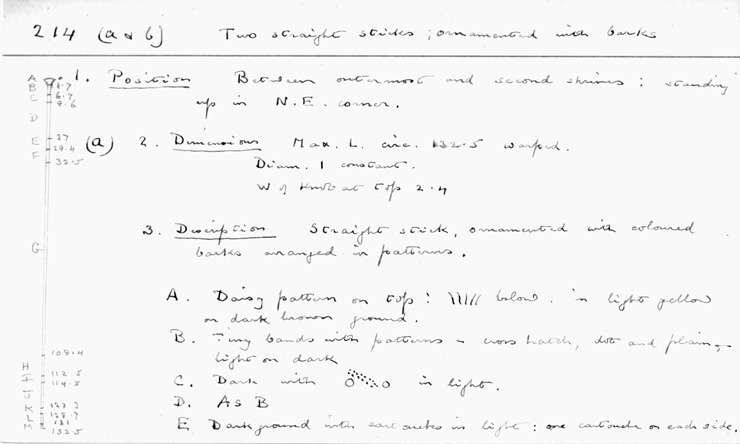 214 (a & b) Two straight sticks; ornamented with barks
1. Position Between outermost and second shrines: standing
up in N.E. corner.
(a) 2. Dimensions Max. L. circ. 132.5 warped.
Diam. 1 constant.
W of Knob at top 2.4
3. Description Straight stick, ornamented with coloured
barks arranged in patterns.
A. Daisy pattern on top: \\\/// below. in light yellow
on dark brown ground.
B. Tiny bands with patterns - cross hatch, dot and plain,-
light on dark
C. Dark with in light.
D. As B
E Dark ground with cartouches in light: one cartouche on each side.
A
B 1.7
C 6.7
9.6
D
E 27
29.4
F 32.5
G
108.4
H 112.5
I 114.5
J
K
L 128.7
131
M 132.5